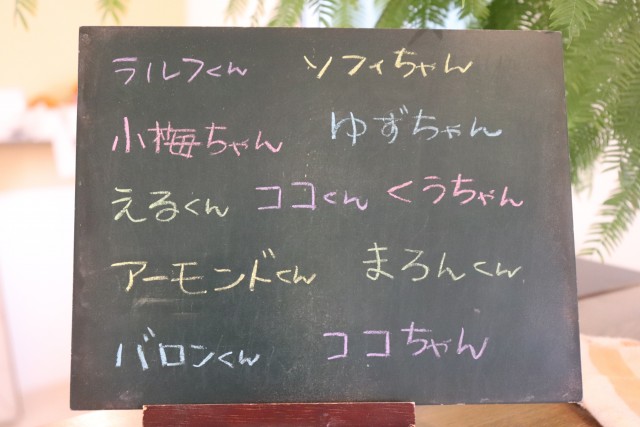 ラルフくん ソフィちゃん
小梅ちゃん ゆずちゃん
えるくん ココくん くうちゃん
アーモンドくん まろんくん
バロンくん ココちゃん